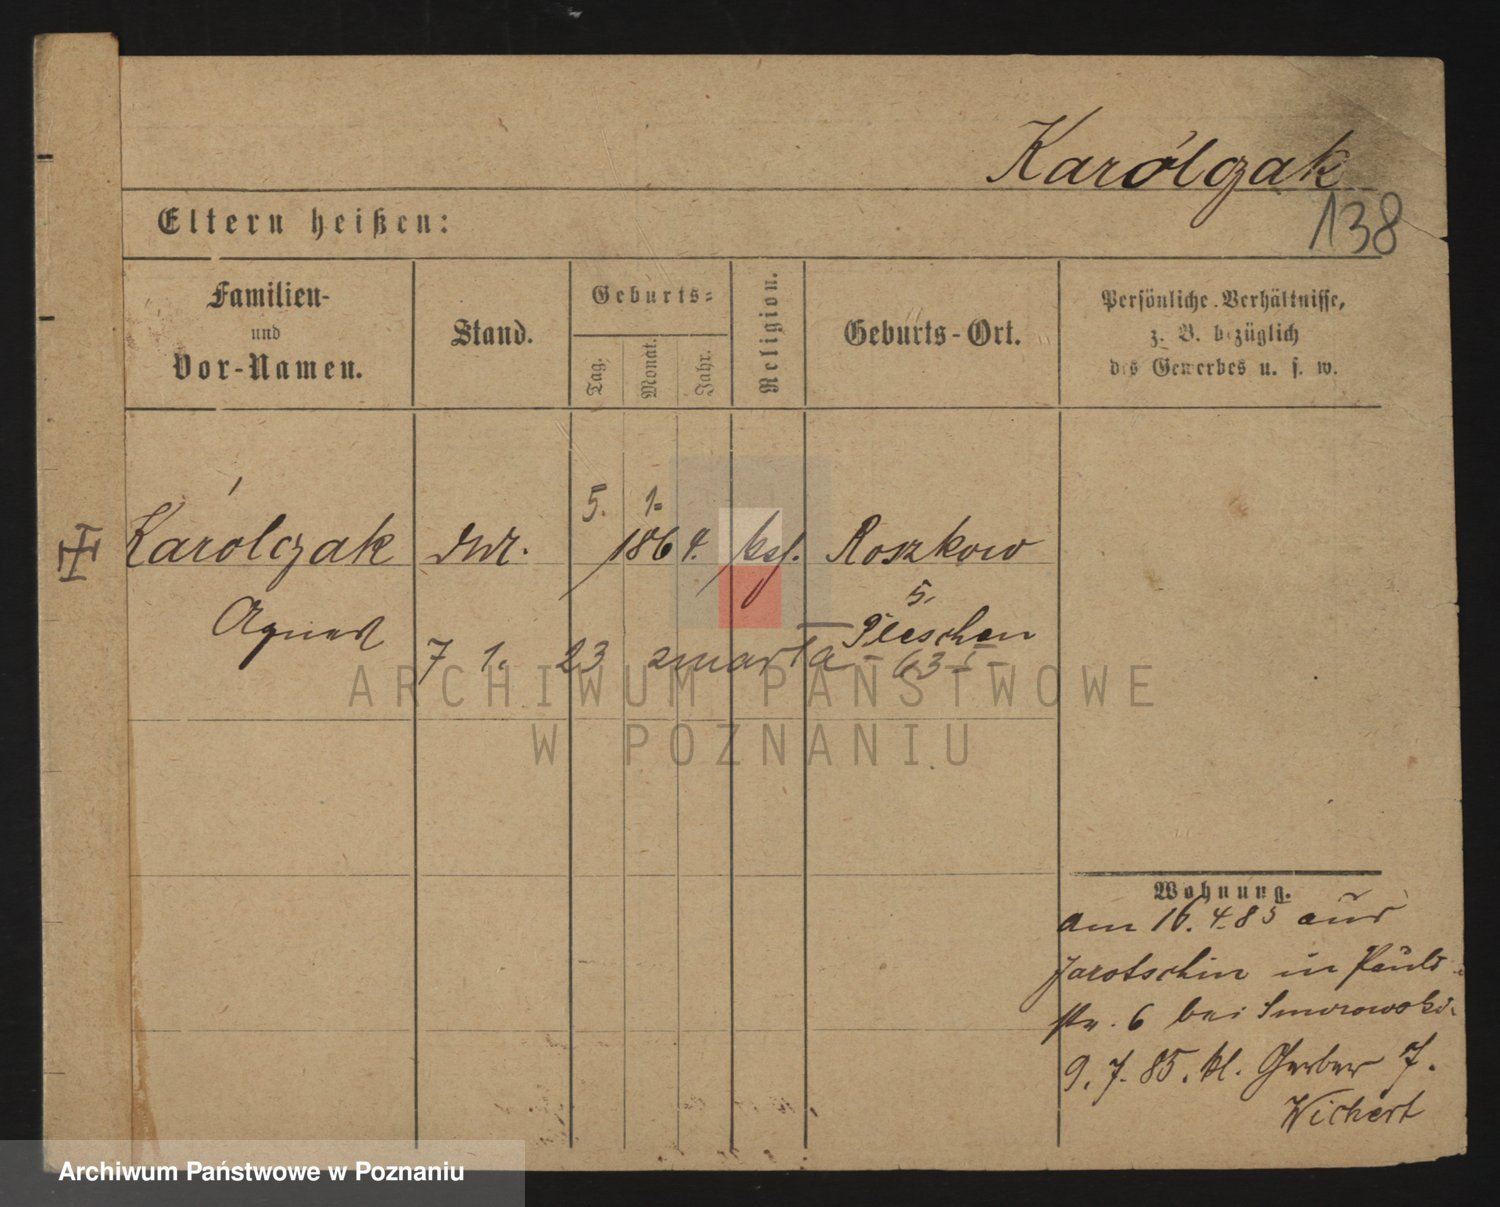 Karólczak
138
Eltern heißen:
Familien-
und
Vor-Namen.
Stand.
Geburts-
Tag.
Monat.
Jahr.
Religion.
Geburts-Ort.
Persönliche Verhältnisse,
z. B. bezüglich
des Gewerbes u. s. w.
5. 1.
Karólczak 1864. Roszkow
5.
Agnes Pleschen
7 1. 23 zmarła 63
ARCHIWUM PAŃSTWOWE
W POZNANIU
Wohnung.
am 16. 4. 85 aus
Jarotschin in Pauls
str. 6 bei Smorowski
9. 7. 85. kl. Gerber 7.
Wichert
Archiwum Państwowe w Poznaniu